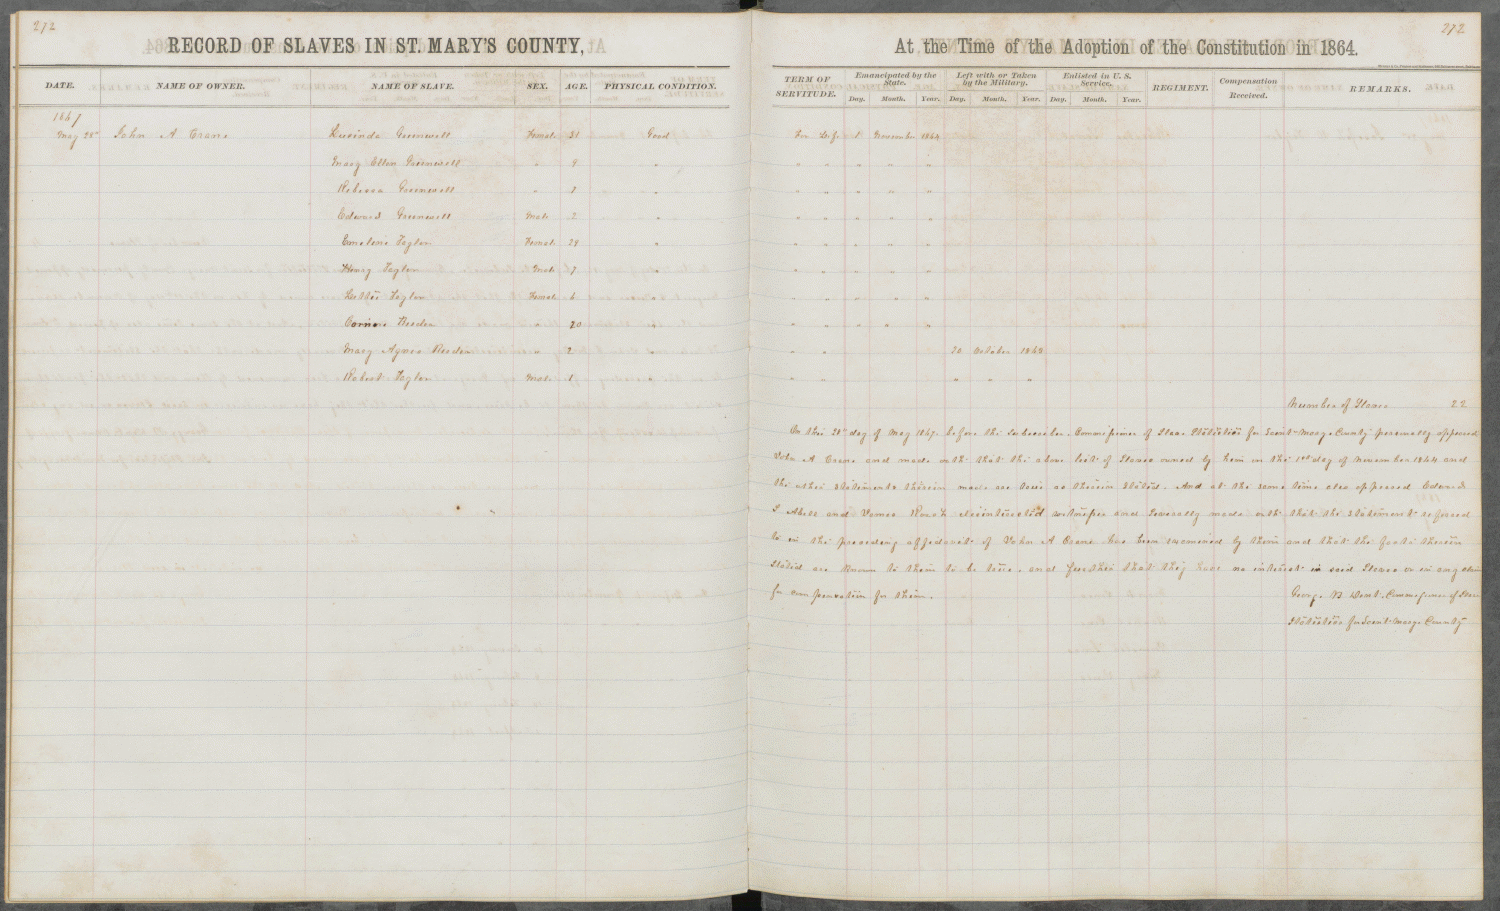 272
272
RECORD OF SLAVES IN ST. MARY'S COUNTY,
At the Time of the Adoption of the Constitution in 1864.
DATE. NAME OF OWNER. NAME OF SLAVE. SEX. AGE. PHYSICAL CONDITION.
TERM OF SERVITUDE. Emancipated by the State. Day. Month. Year. Left with or Taken by the Military. Day. Month. Year. Enlisted in U. S. Service. Day. Month. Year. REGIMENT. Compensation Received. REMARKS.
1867
May 28 John A Crane Lucinda Greenwell Female 31 Good For Life 1 November 1864
Mary Ellen Greenwell " 9 " " " " " "
Rebecca Greenwell " " " " " " "
Edward Greenwell Male 2 " " " " " "
Emeline Taylor Female 29 " " " " " "
Henry Taylor Male 7 " " " " " "
Taylor Female " " " " " "
Reeder " 20 " " " " " "
Mary Agnes Reeder " 2 " " " 20 October 1863
Robert Taylor Male 1 " " " " " "
Number of Slaves 22
On this 28" day of May 1867. before the subscriber, Commissioner of Slave Statistics for Saint Mary's County personally appeared
John A Crane and made oath that the above list of Slaves owned by him on the 1st day of November 1864 and
the other statements therein made are true as therein stated. And at the same time also appeared Edward
J Abell and James Roach disinterested witnesses and severally made oath that the statements referred
to in the preceding affidavit of John A Crane has been examined by them and that the facts therein
stated are known to them to be true, and further that they have no interest in said Slaves or in any claim
for compensation for them. George B Dent. Commissioner of Slave
Statistics for Saint Mary's County